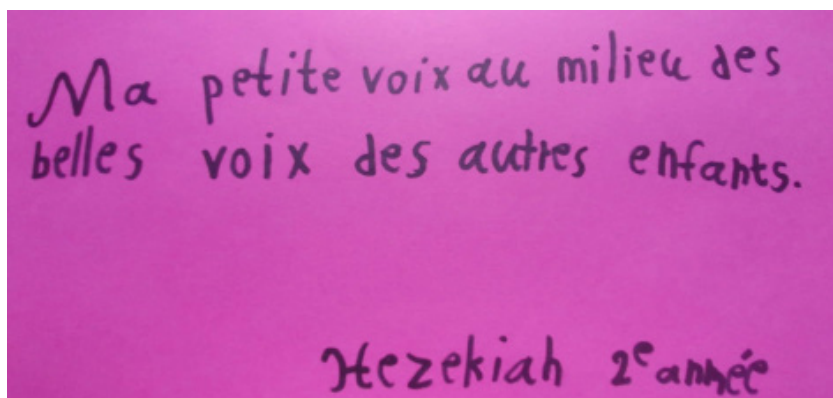 Ma petite voix au milieu des
belles voix des autres enfants.
Hezekiah 2e année